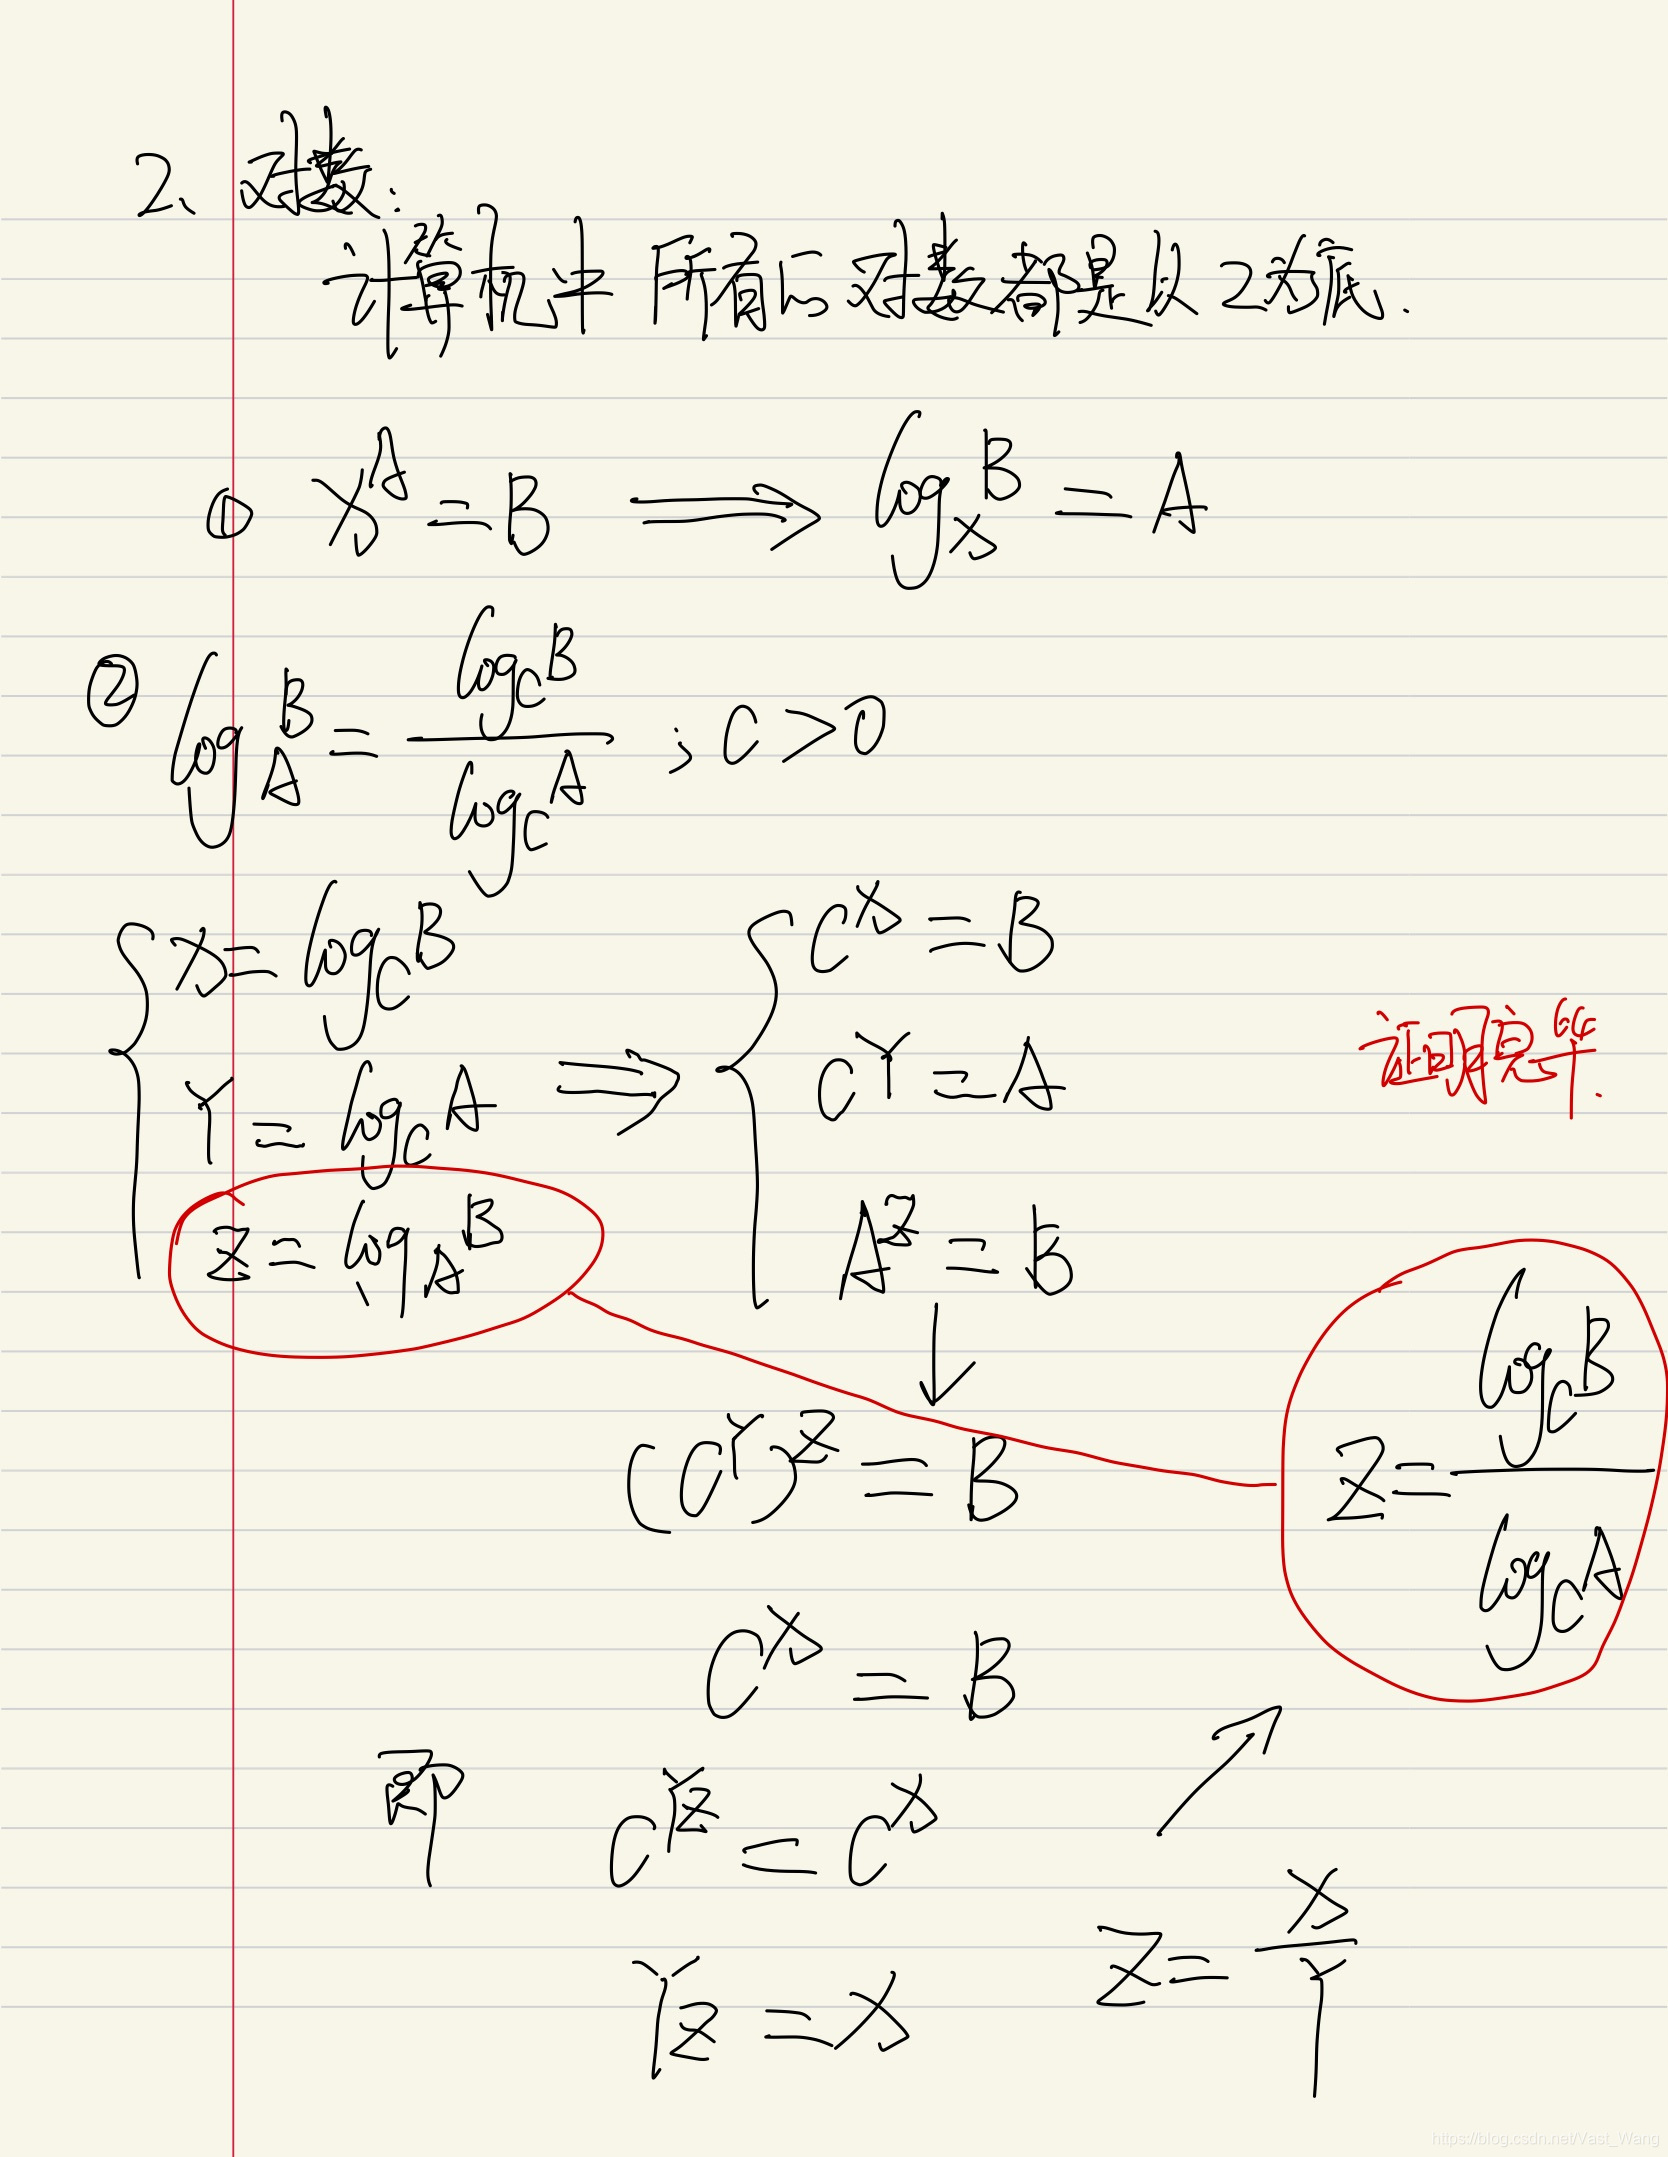 2、对数:
计算机中所有的对数都是以2为底.
① X^A = B ⟹ log_X B = A
② log_A B = log_C B / log_C A ; C > 0
{ X = log_C B
Y = log_C A
Z = log_A B
⟹ { C^X = B
C^Y = A
A^Z = B
↓
(C^Y)^Z = B
C^X = B
即 C^{YZ} = C^X
YZ = X
Z = X / Y
↗
Z = log_C B / log_C A
证明完毕.
https://blog.csdn.net/Vast_Wang